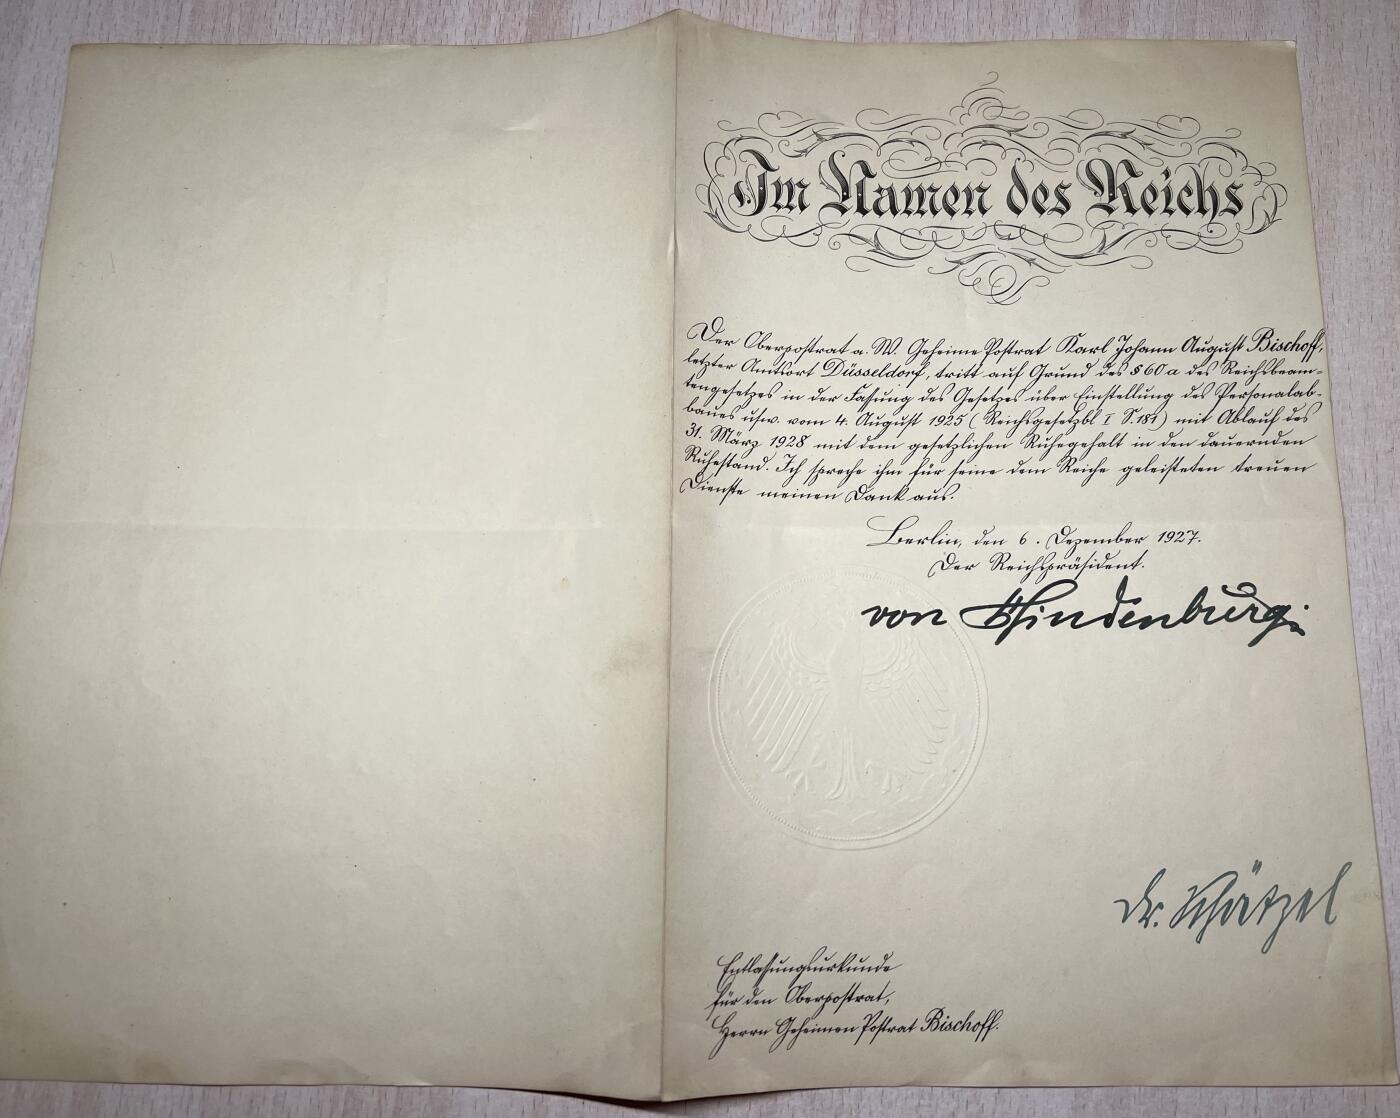 Im Namen des Reichs
Der Oberpostrat a. W. Geheime Postrat Karl Johann August Bischoff,
letzter Amtsort Düsseldorf, tritt auf Grund des § 60a des Reichsbeam-
tengesetzes in der Fassung des Gesetzes über Einstellung des Personalab-
baues usw. vom 4. August 1925 (Reichsgesetzbl I S. 181) mit Ablauf des
31. März 1928 mit dem gesetzlichen Ruhegehalt in den dauernden
Ruhestand. Ich spreche ihm für seine dem Reiche geleisteten treuen
Dienste meinen Dank aus.
Berlin, den 6. Dezember 1927.
Der Reichspräsident.
von Hindenburg.
Dr. Schätzel
Entlassungsurkunde
für den Oberpostrat,
Herrn Geheimen Postrat Bischoff.